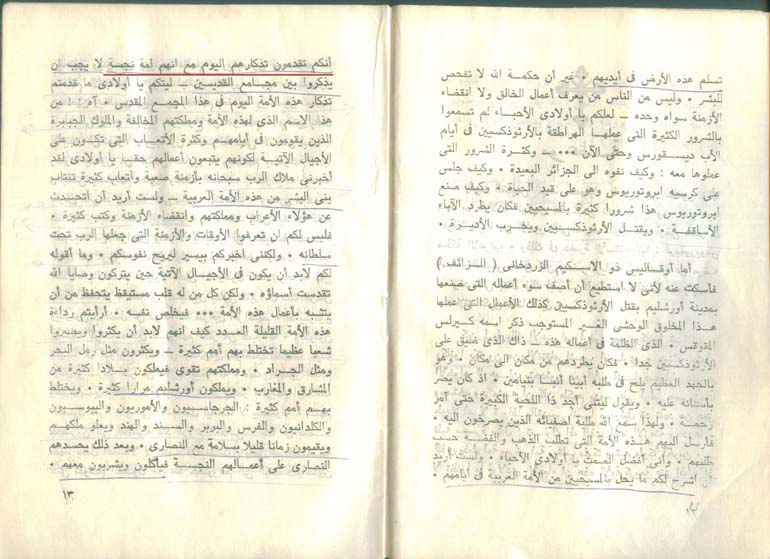 تسلم هذه الأرض فى أيديهم • غير أن حكمة الله لا تفحص
للبشر • وليس من الناس من يعرف أعمال الخالق ولا انقضاء
الأزمنة سواه وحده ــ لعلكم يا أولادى الأحباء لم تسمعوا
بالشرور الكثيرة التى عملها الهراطقة بالأرثوذكسيين فى أيام
الأب ديسقورس وحتى الآن ••• ــ وكثرة الشرور التى
عملوها معه : وكيف نفوه الى الجزائر البعيدة • وكيف جلس
على كرسيه ابروتوريوس وهو على قيد الحياة • وكيف صنع
ابروتوريوس هذا شرورا كثيرة بالمسيحيين فكان يطرد الآباء
الأساقفة • ويقتل الأرثوذكسيين ويخرب الأديرة •
أما أوقاليس ذو الاسكيم الزردخانى ( الزائف )
فأسكت عنه لأنى لا استطيع أن أصف سوء أعماله التى صنعها
بمدينة أورشليم بقتل الأرثوذكسيين كذلك الأعمال التى عملها
هذا المخلوق الوحشى الغير المستوجب ذكر اسمه كيرلس
المقوقس • الذى الظلمة فى أعماله هذه ــ ذاك الذى ضيق على
الأرثوذكسيين جدا • فكان يطردهم من مكان الى مكان • وهو
بالجهد العظيم يلح فى طلبه أبينا أنبا بنيامين • اذ كان يصر
بأسنانه عليه • ويقول ليتنى أجد ذا اللحية الكبيرة حتى آمر
• ولهذا سمع الله طلبة أصفيائه الذين يصرخون اليه •
فأرسل اليهم هذه الأمة التى تطلب الذهب والفضة حسب
طلبهم • وأنى أفضل الصمت يا أولادى الأحباء • ولست أريد
أن اشرح لكم ما يحل بالمسيحيين من الأمة العربية فى أيامهم •
أنكم تقدمون تذكارهم اليوم مع انهم امة نجسة لا يجب ان
يذكروا بين مجامع القديسين ــ ليتكم يا أولادى ما قدمتم
تذكار هذه الأمة اليوم فى هذا المجمع المقدس • آه ! ! من
هذا الاسم الذى لهذه الأمة ومملكتهم المخالفة والملوك الجبابرة
الذين يقومون فى أيامهم وكثرة الأتعاب التى تكون على
الأجيال الآتية لكونهم يتبعون أعمالهم حقا يا أولادى لقد
أخبرنى ملاك الرب سبحانه بأزمنة صعبة وأتعاب كثيرة تنتاب
بنى البشر من هذه الأمة العربية ــ ولست أريد أن أتحدث
عن هؤلاء الأعراب ومملكتهم وانقضاء الأزمنة وكتب كثيرة •
فليس لكم ان تعرفوا الأوقات والأزمنة التى جعلها الرب تحت
سلطانه • ولكننى اخبركم بيسير ليربح نفوسكم • وما أقوله
لكم لابد ان يكون فى الأجيال الآتية حين يتركون وصايا الله
تقدست أسماؤه • ولكن كل من له قلب مستيقظ يتحفظ من أن
يتشبه بأعمال هذه الأمة ••• فيخلص نفسه • أرأيتم رداءة
هذه الأمة القليلة العدد كيف انهم لابد أن يكثروا ويصيروا
شعبا عظيما تختلط بهم أمم كثيرة ــ ويكثرون مثل رمل البحر
ومثل الجراد • ومملكتهم تقوى فيملكون بلادا كثيرة من
المشارق والمغارب • ويملكون أورشليم مرارا كثيرة • ويختلط
بهم أمم كثيرة : الجرجاسيون والأموريون واليبوسيون
والكلدانيون والفرس والبربر والسند والهند ويعلو ملكهم
ويقيمون زمانا قليلا بسلامة مع النصارى • وبعد ذلك يحسدهم
النصارى على أعمالهم النجسة فيأكلون ويشربون معهم •
١٣